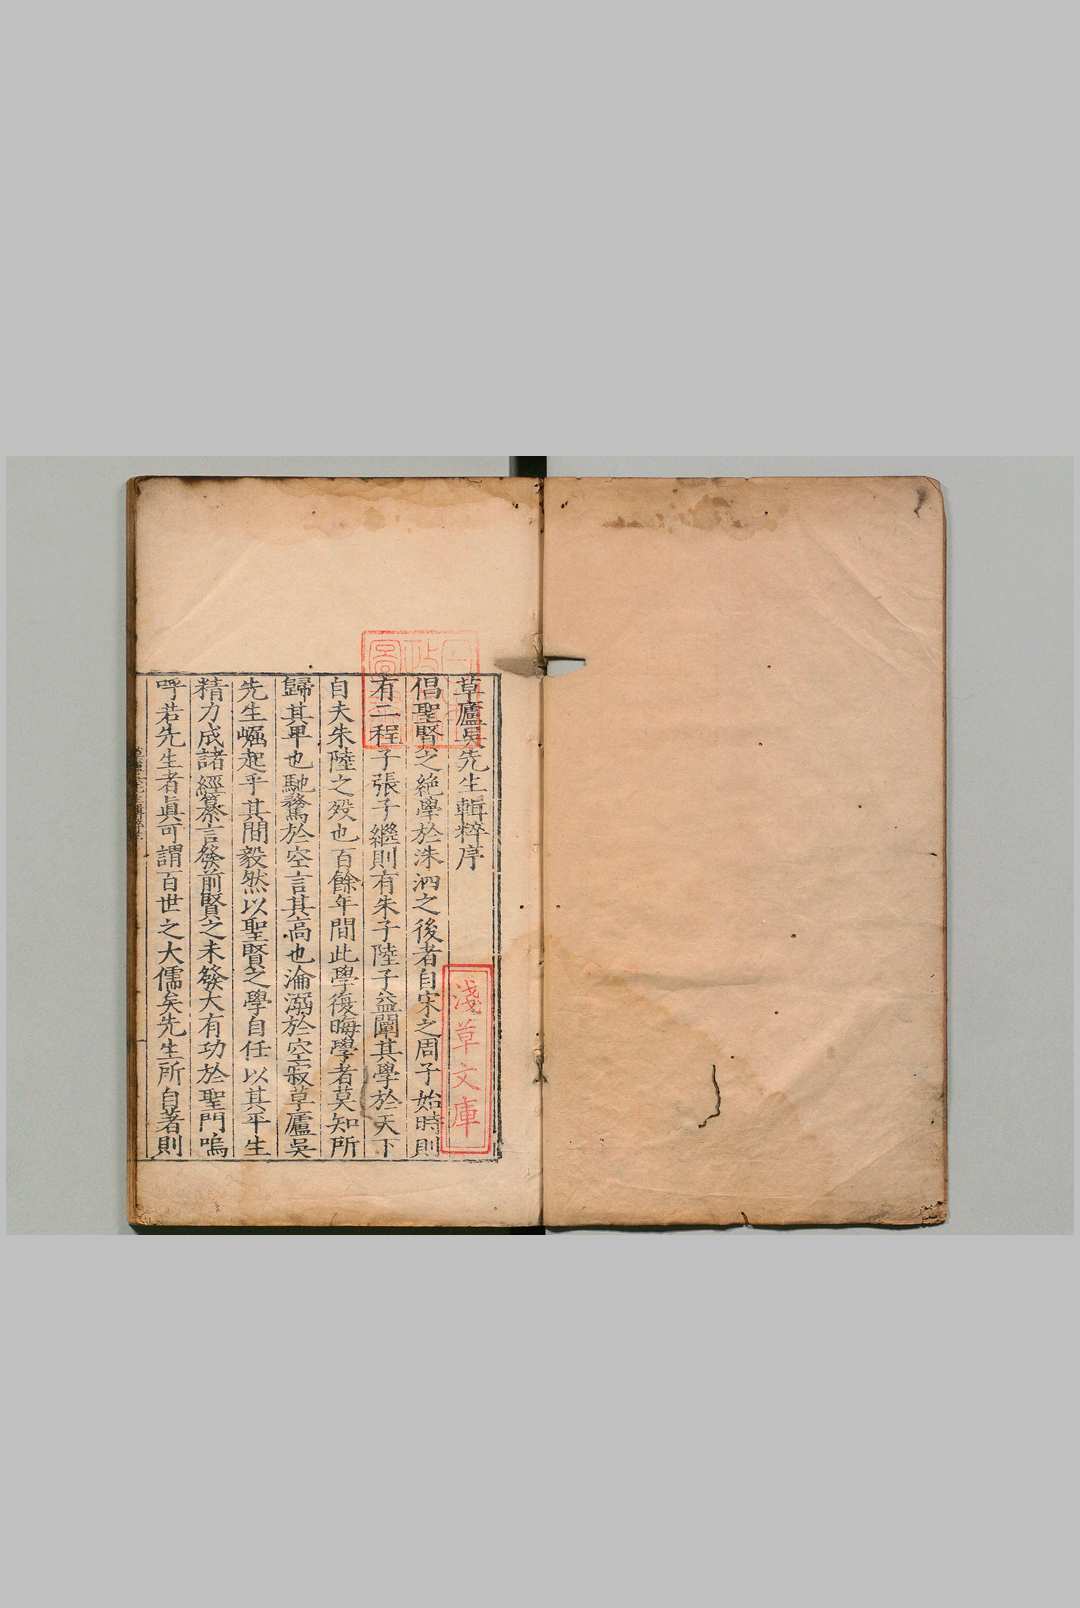 草廬吳先生輯粹序
倡聖賢之絶學於洙泗之後者自宋之周子始時則
有二程子張子繼則有朱子陸子益闡其學於天下
自夫朱陸之殁也百餘年間此學復晦學者莫知所
歸其卑也馳騖於空言其高也淪溺於空寂草廬吳
先生崛起乎其間毅然以聖賢之學自任以其平生
精力成諸經纂言發前賢之未發大有功於聖門嗚
呼若先生者眞可謂百世之大儒矣先生所自著則
淺草文庫